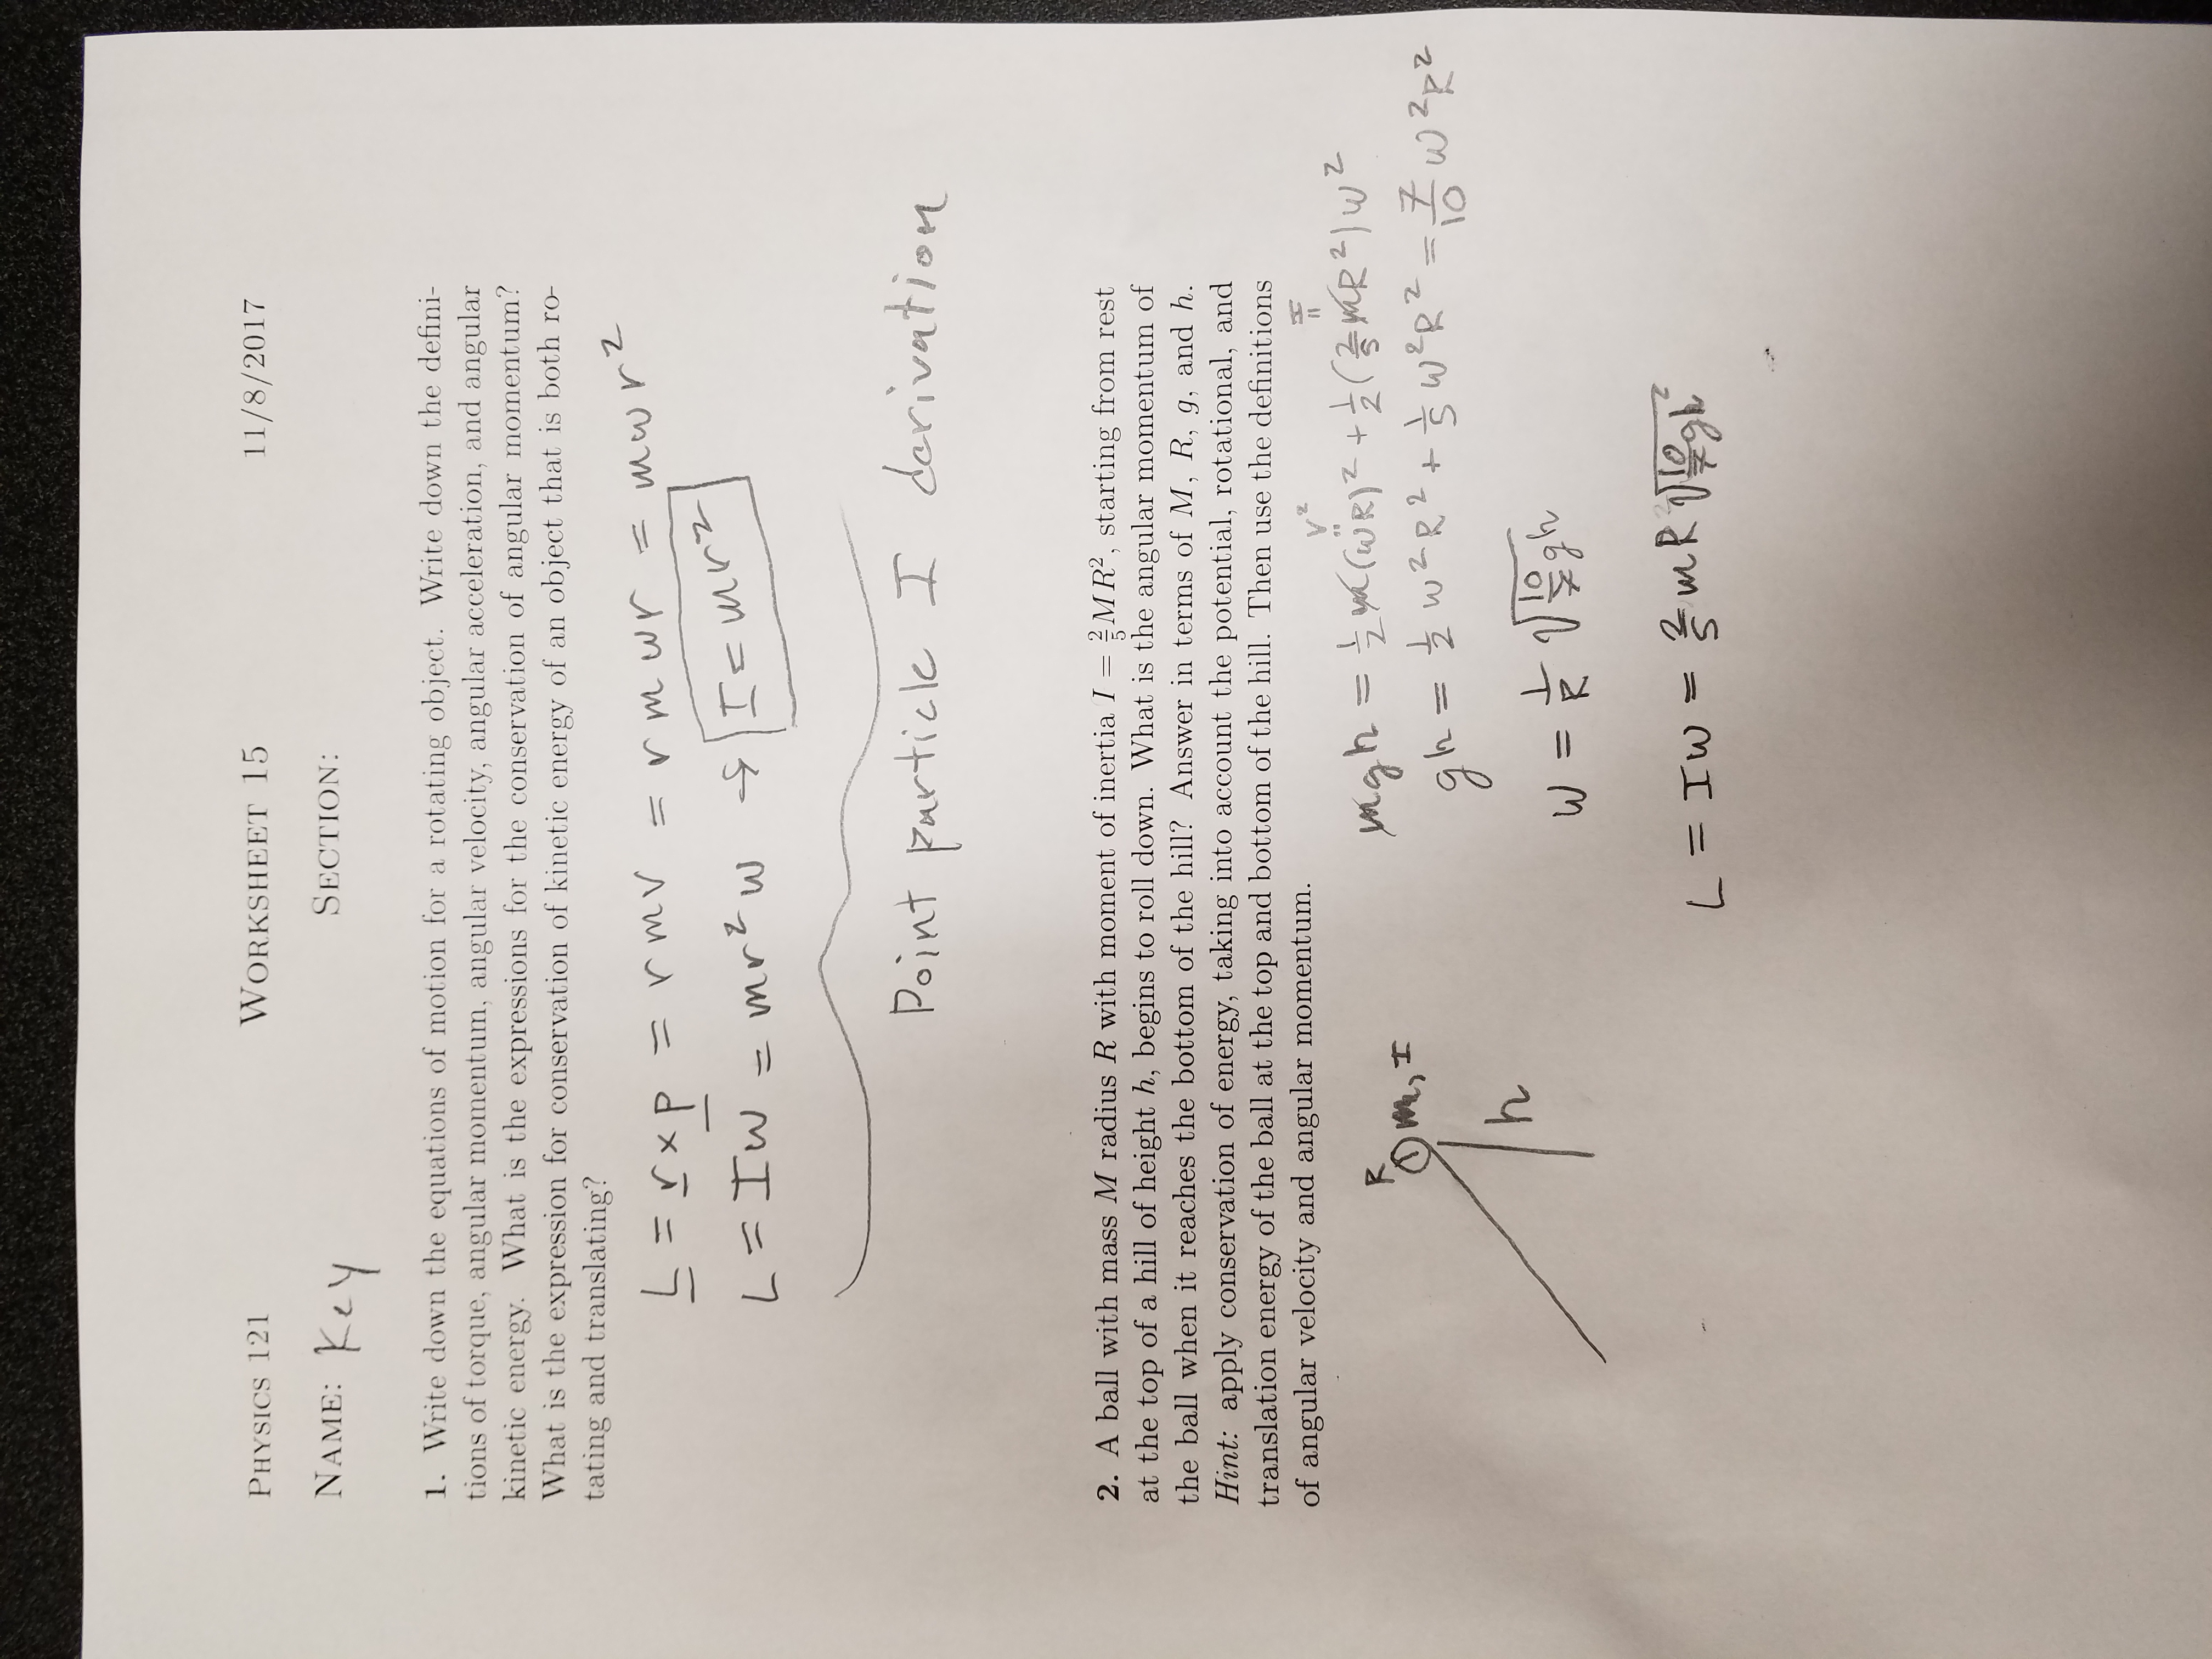 PHYSICS 121 WORKSHEET 15 11/8/2017
NAME: Key SECTION:
1. Write down the equations of motion for a rotating object. Write down the defini-
tions of torque, angular momentum, angular velocity, angular acceleration, and angular
kinetic energy. What is the expressions for the conservation of angular momentum?
What is the expression for conservation of kinetic energy of an object that is both ro-
tating and translating?
L = r × p = r m v = r m w r = m w r²
L = I w = m r² w → I = m r²
Point particle I derivation
2. A ball with mass M radius R with moment of inertia I = 2/5 MR², starting from rest
at the top of a hill of height h, begins to roll down. What is the angular momentum of
the ball when it reaches the bottom of the hill? Answer in terms of M, R, g, and h.
Hint: apply conservation of energy, taking into account the potential, rotational, and
translation energy of the ball at the top and bottom of the hill. Then use the definitions
of angular velocity and angular momentum.
v² I
mgh = 1/2 m(wR)² + 1/2 (2/5 mR²) w²
R m, I
gh = 1/2 w²R² + 1/5 w²R² = 7/10 w²R²
h
w = 1/R √(10/7 gh)
L = I w = 2/5 m R √(10/7 gh)